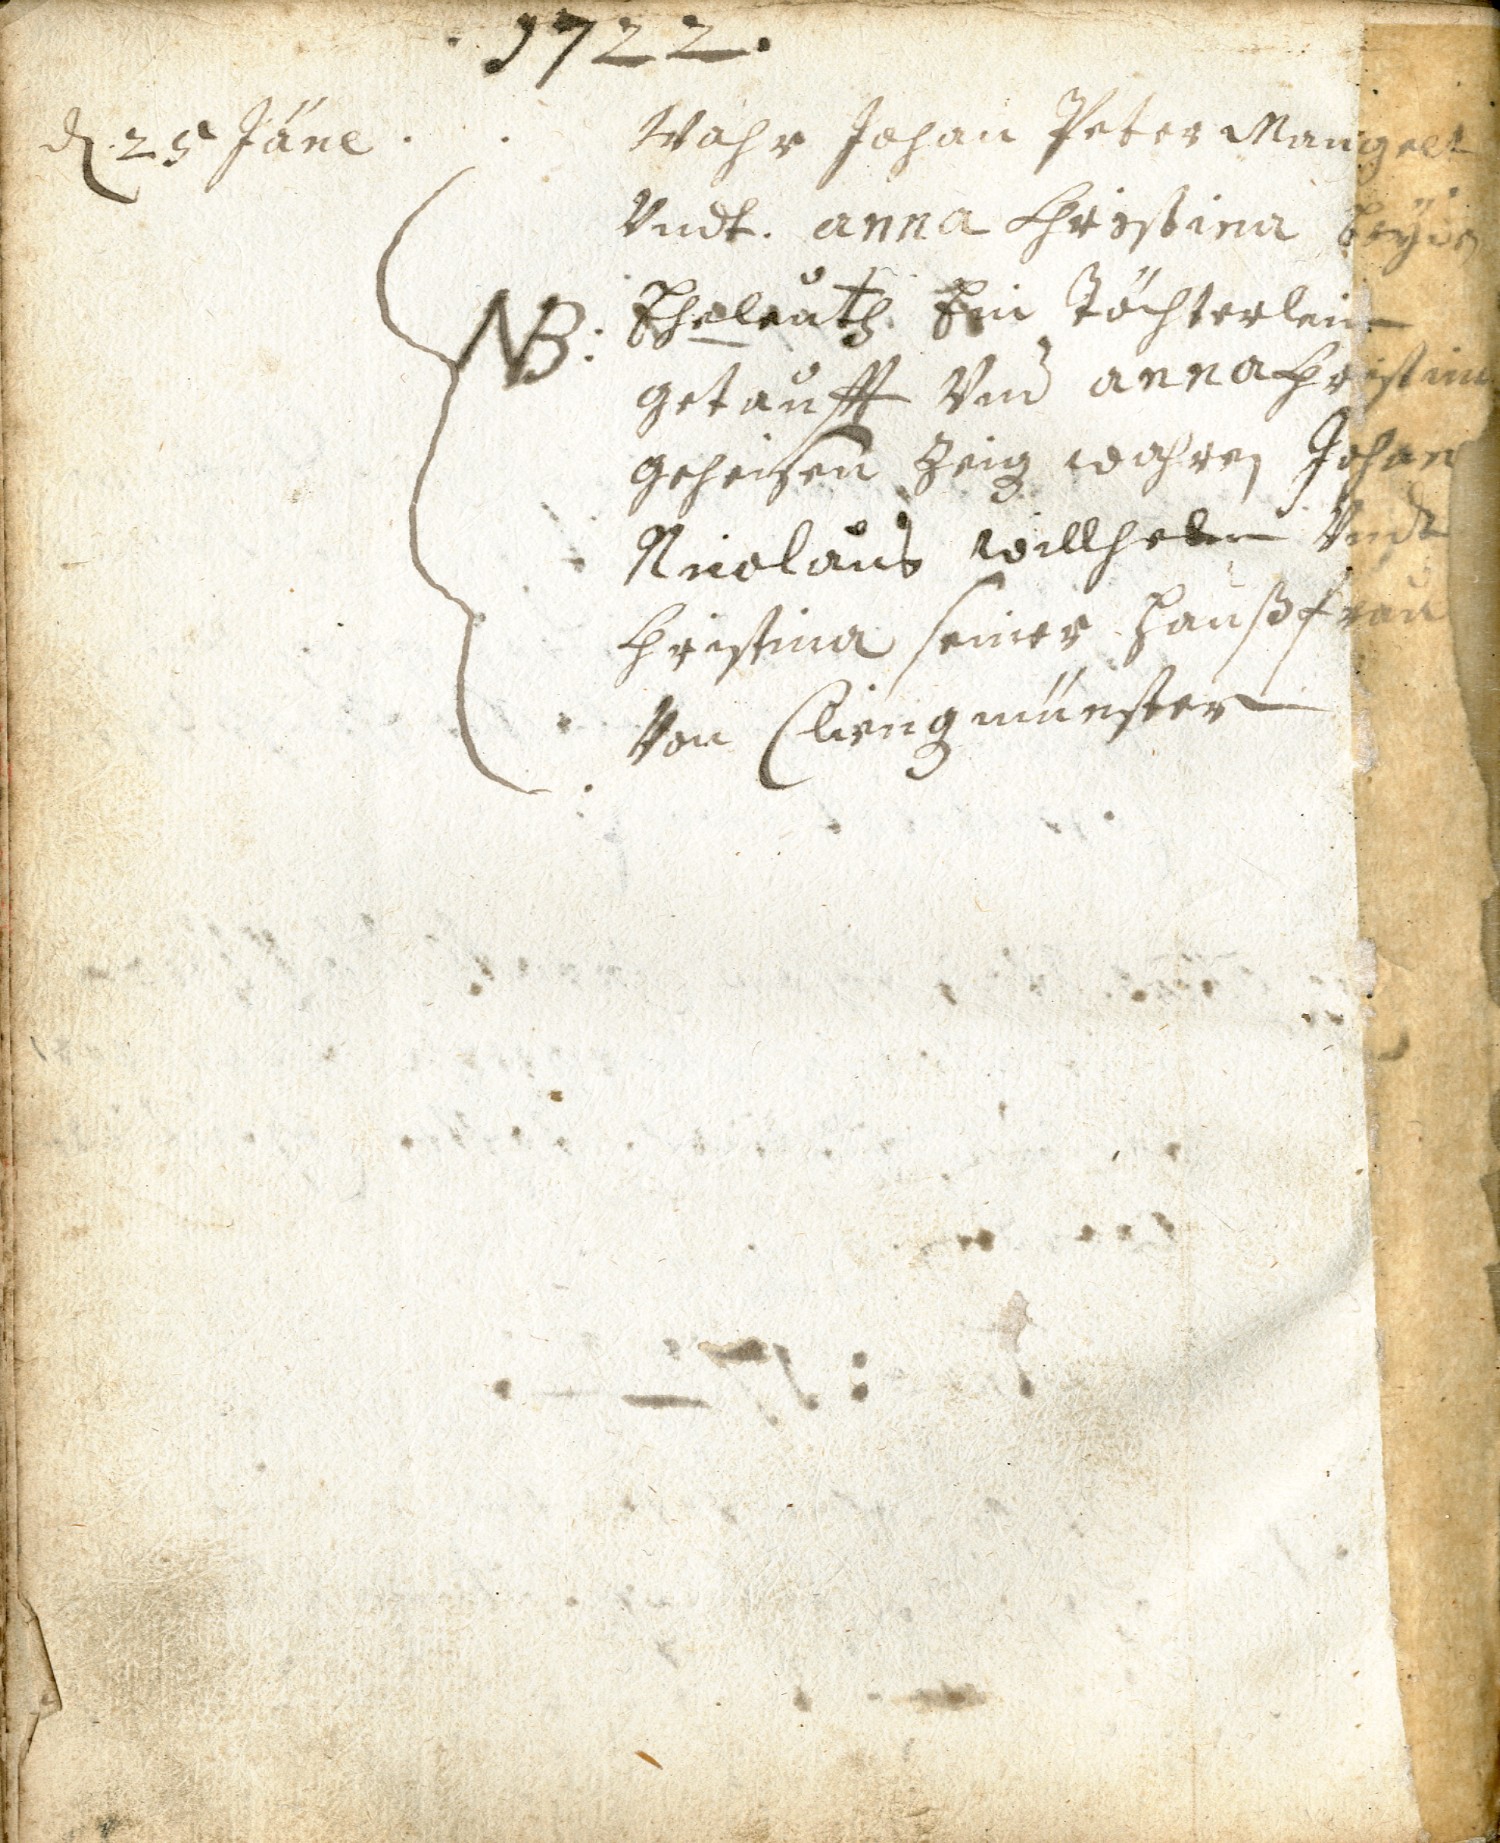 1722.
d. 25 Jäne.
Wahr Johan Peter Mangelt
Vndt. anna Christina beyde
NB: Eheleuth Ein Töchterlein
getaufft Vnd anna Christina
geheisen Zeig wahren Johan
Nicolaus willhelm Vndt
Christina seiner Haußfrau
Von Clingmünster